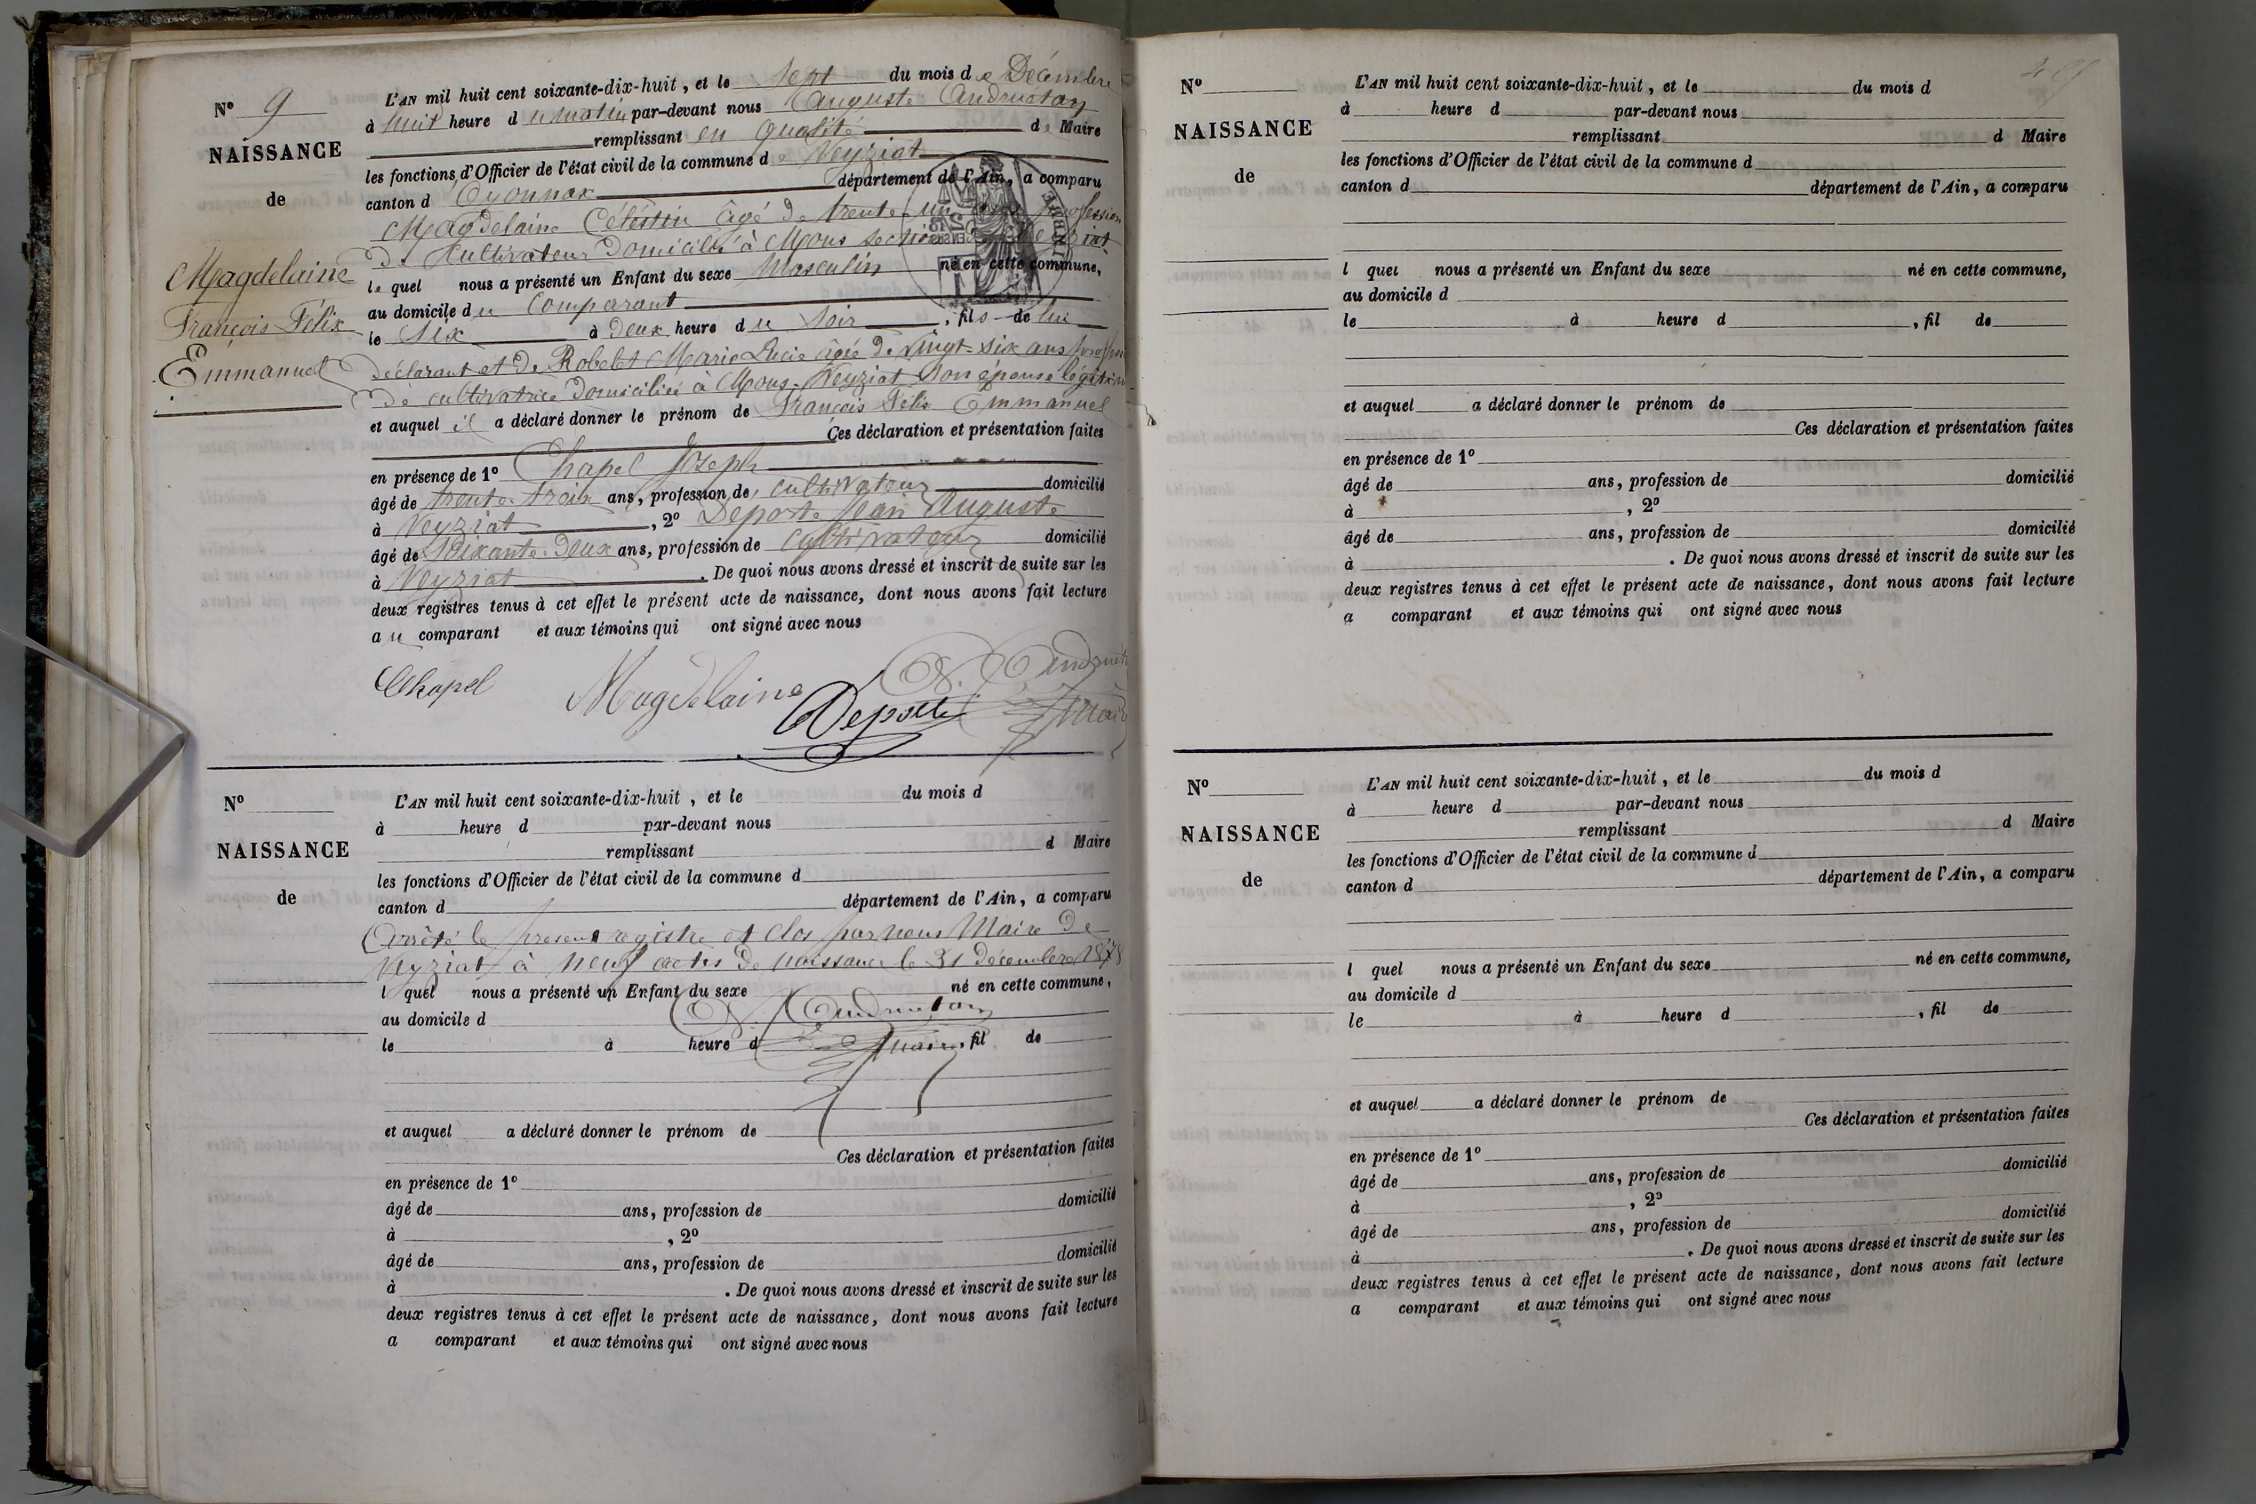 N° 9
NAISSANCE
de
Magdelaine
François Félix
Emmanuel
L'AN mil huit cent soixante-dix-huit, et le sept du mois de Décembre
à huit heure du matin par-devant nous Auguste Andruétan
remplissant en qualité de Maire
les fonctions d'Officier de l'état civil de la commune de Veyziat
canton d'Oyonnax département de l'Ain, a comparu
Magdelaine Célestin âgé de trente-un ans profession
de Cultivateur domicilié à Mons section de Veyziat
lequel nous a présenté un Enfant du sexe Masculin né en cette commune,
au domicile du Comparant
le Six à deux heure du soir, fils de lui
déclarant et de Robelet Marie Lucie âgée de vingt-six ans
de cultivatrice domiciliée à Mons-Veyziat son épouse légitime
et auquel il a déclaré donner le prénom de François Félix Emmanuel
Ces déclaration et présentation faites
en présence de 1° Chapel Joseph
âgé de trente-trois ans, profession de cultivateur domicilié
à Veyziat, 2° Déporte Jean Auguste
âgé de Soixante-deux ans, profession de cultivateur domicilié
à Veyziat. De quoi nous avons dressé et inscrit de suite sur les
deux registres tenus à cet effet le présent acte de naissance, dont nous avons fait lecture
au comparant et aux témoins qui ont signé avec nous
Chapel Magdelaine Deporte
N°
NAISSANCE
de
L'AN mil huit cent soixante-dix-huit, et le du mois d
à heure d par-devant nous
remplissant d Maire
les fonctions d'Officier de l'état civil de la commune d
canton d département de l'Ain, a comparu
Arrêté le présent registre et clos par nous Maire de
Veyziat à neuf actes de naissance le 31 décembre 1878
l quel nous a présenté un Enfant du sexe né en cette commune,
au domicile d
le à heure d, fil de
et auquel a déclaré donner le prénom de
Ces déclaration et présentation faites
en présence de 1°
âgé de ans, profession de domicilié
à , 2°
âgé de ans, profession de domicilié
à . De quoi nous avons dressé et inscrit de suite sur les
deux registres tenus à cet effet le présent acte de naissance, dont nous avons fait lecture
a comparant et aux témoins qui ont signé avec nous
N°
NAISSANCE
de
L'AN mil huit cent soixante-dix-huit, et le du mois d
à heure d par-devant nous
remplissant d Maire
les fonctions d'Officier de l'état civil de la commune d
canton d département de l'Ain, a comparu
l quel nous a présenté un Enfant du sexe né en cette commune,
au domicile d
le à heure d , fil de
et auquel a déclaré donner le prénom de
Ces déclaration et présentation faites
en présence de 1°
âgé de ans, profession de domicilié
à , 2°
âgé de ans, profession de domicilié
à . De quoi nous avons dressé et inscrit de suite sur les
deux registres tenus à cet effet le présent acte de naissance, dont nous avons fait lecture
a comparant et aux témoins qui ont signé avec nous
N°
NAISSANCE
de
L'AN mil huit cent soixante-dix-huit, et le du mois d
à heure d par-devant nous
remplissant d Maire
les fonctions d'Officier de l'état civil de la commune d
canton d département de l'Ain, a comparu
l quel nous a présenté un Enfant du sexe né en cette commune,
au domicile d
le à heure d , fil de
et auquel a déclaré donner le prénom de
Ces déclaration et présentation faites
en présence de 1°
âgé de ans, profession de domicilié
à , 2°
âgé de ans, profession de domicilié
à . De quoi nous avons dressé et inscrit de suite sur les
deux registres tenus à cet effet le présent acte de naissance, dont nous avons fait lecture
a comparant et aux témoins qui ont signé avec nous